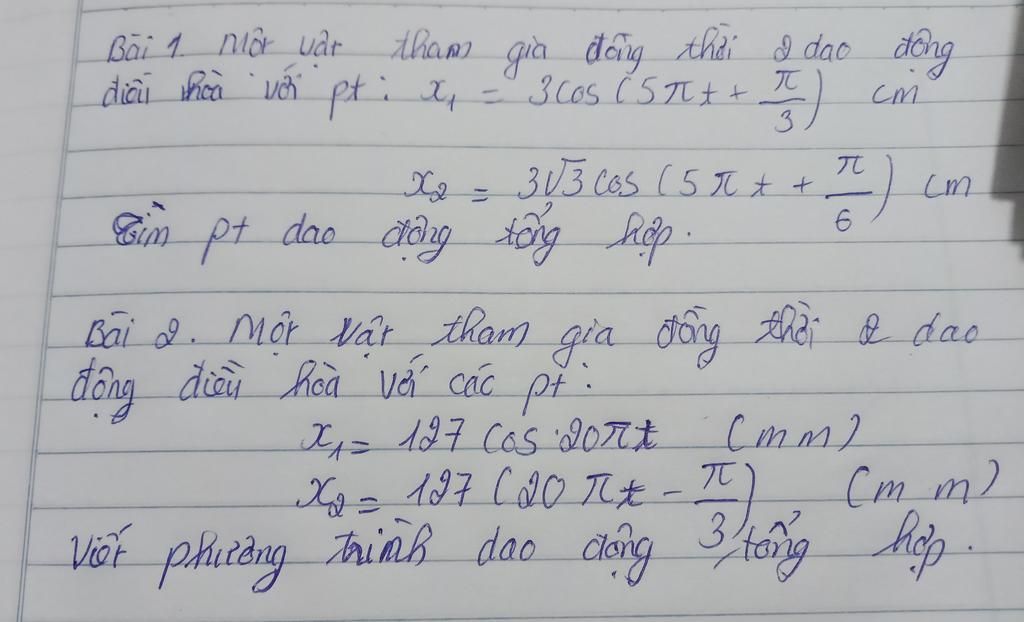 Bài 1. Một vật tham gia đồng thời 2 dao động
điều hòa với pt: x₁ = 3cos(5πt + π/3) cm
x₂ = 3√3cos(5πt + π/6) cm
Tìm pt dao động tổng hợp.
Bài 2. Một vật tham gia đồng thời 2 dao
động điều hòa với các pt:
x₁ = 127 cos 20πt (mm)
x₂ = 127 (20πt - π/3) (mm)
Viết phương trình dao động tổng hợp.